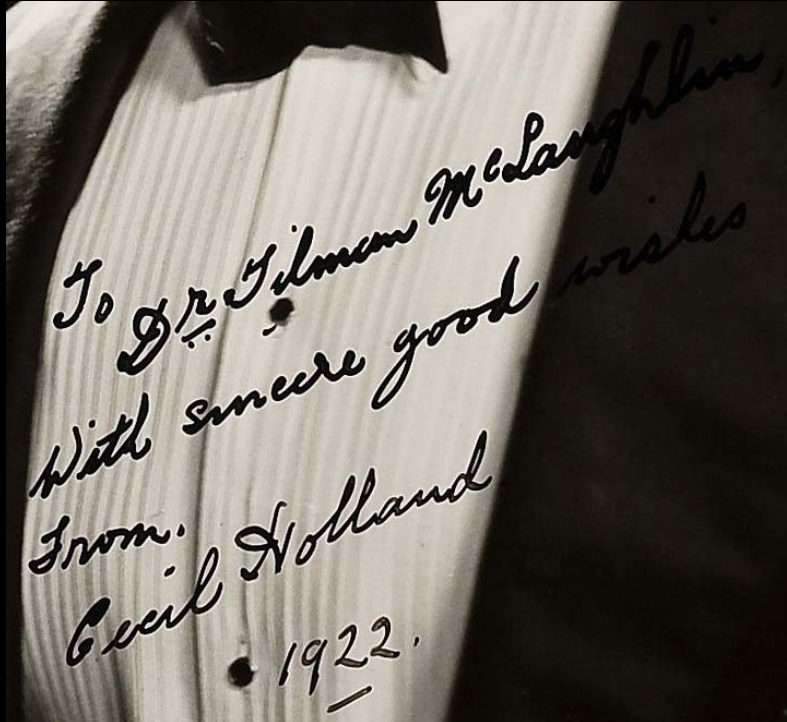 To Dr Tilman McLaughlin,
With sincere good wishes
From.
Cecil Holland
1922.